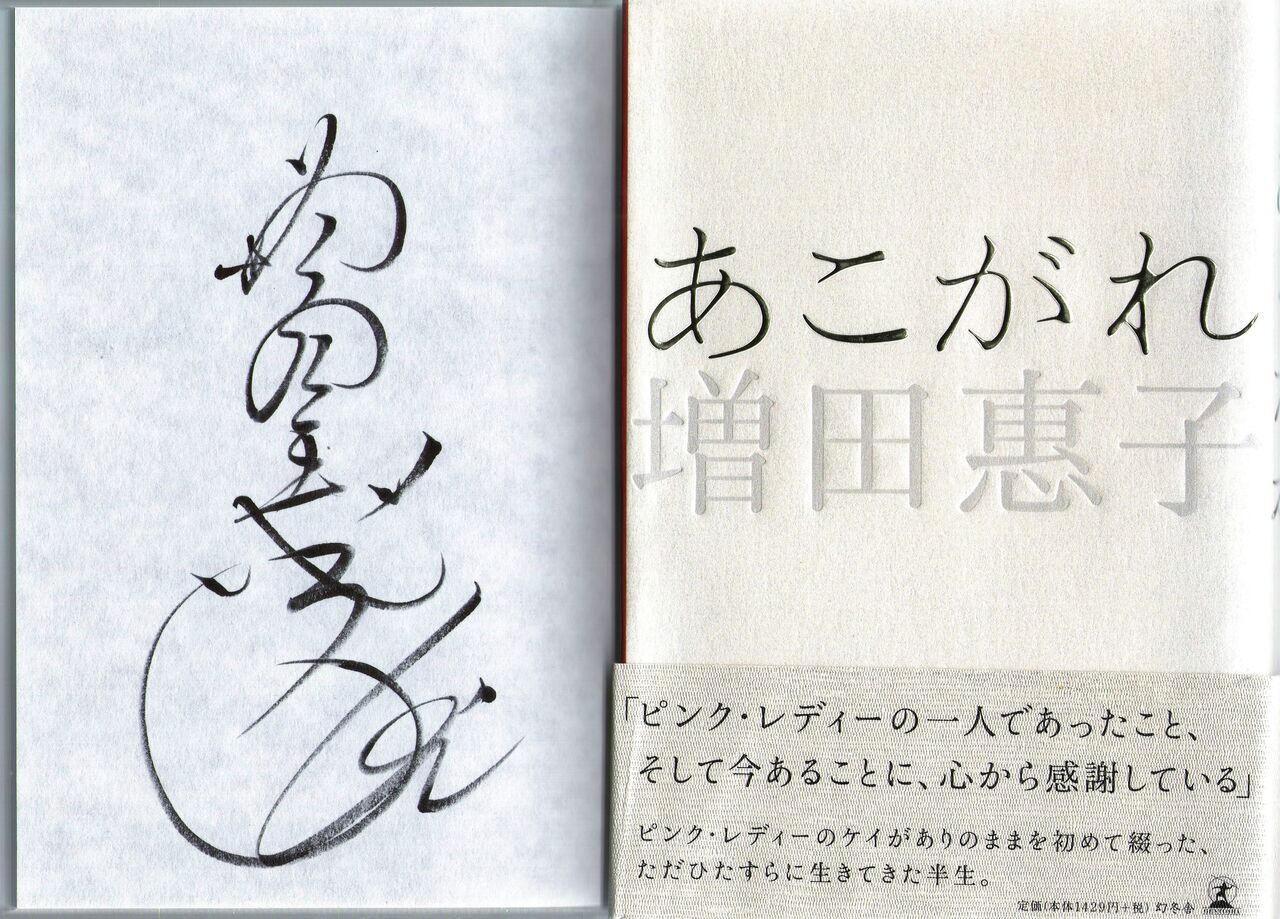 あこがれ
増田惠子
「ピンク・レディーの一人であったこと、
そして今あることに、心から感謝している」
ピンク・レディーのケイがありのままを初めて綴った、
ただひたすらに生きてきた半生。
定価(本体1429円+税) 幻冬舎